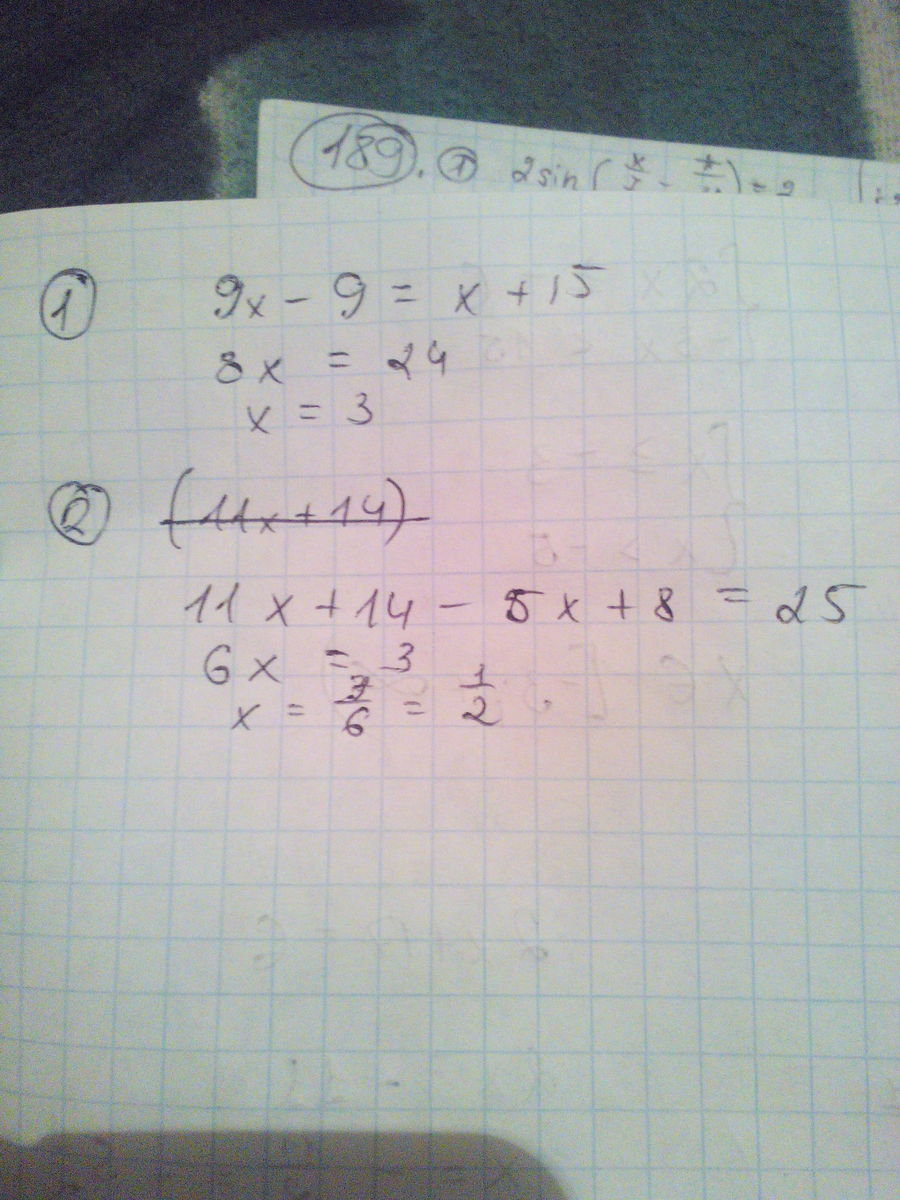 189. 1 2 sin (x/
1 9x - 9 = x + 15
8x = 24
x = 3
2 (11x + 14)
11x + 14 - 5x + 8 = 25
6x = 3
x = 3/6 = 1/2